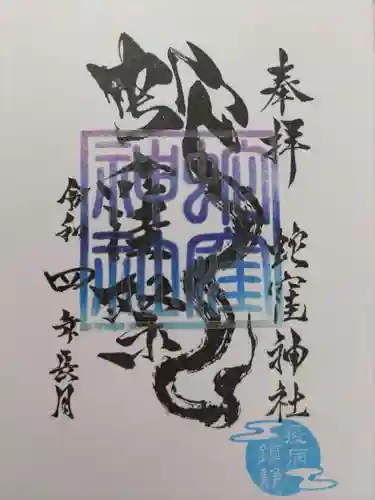 奉拝
蛇窪神社
蛇窪神社
令和四年長月
疫病
鎮静